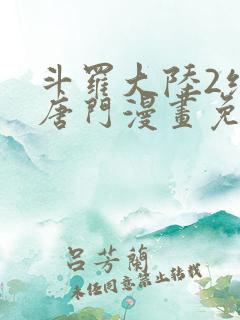 斗羅大陸2
唐門漫畫免
呂芳蘭
未经同意禁止转载